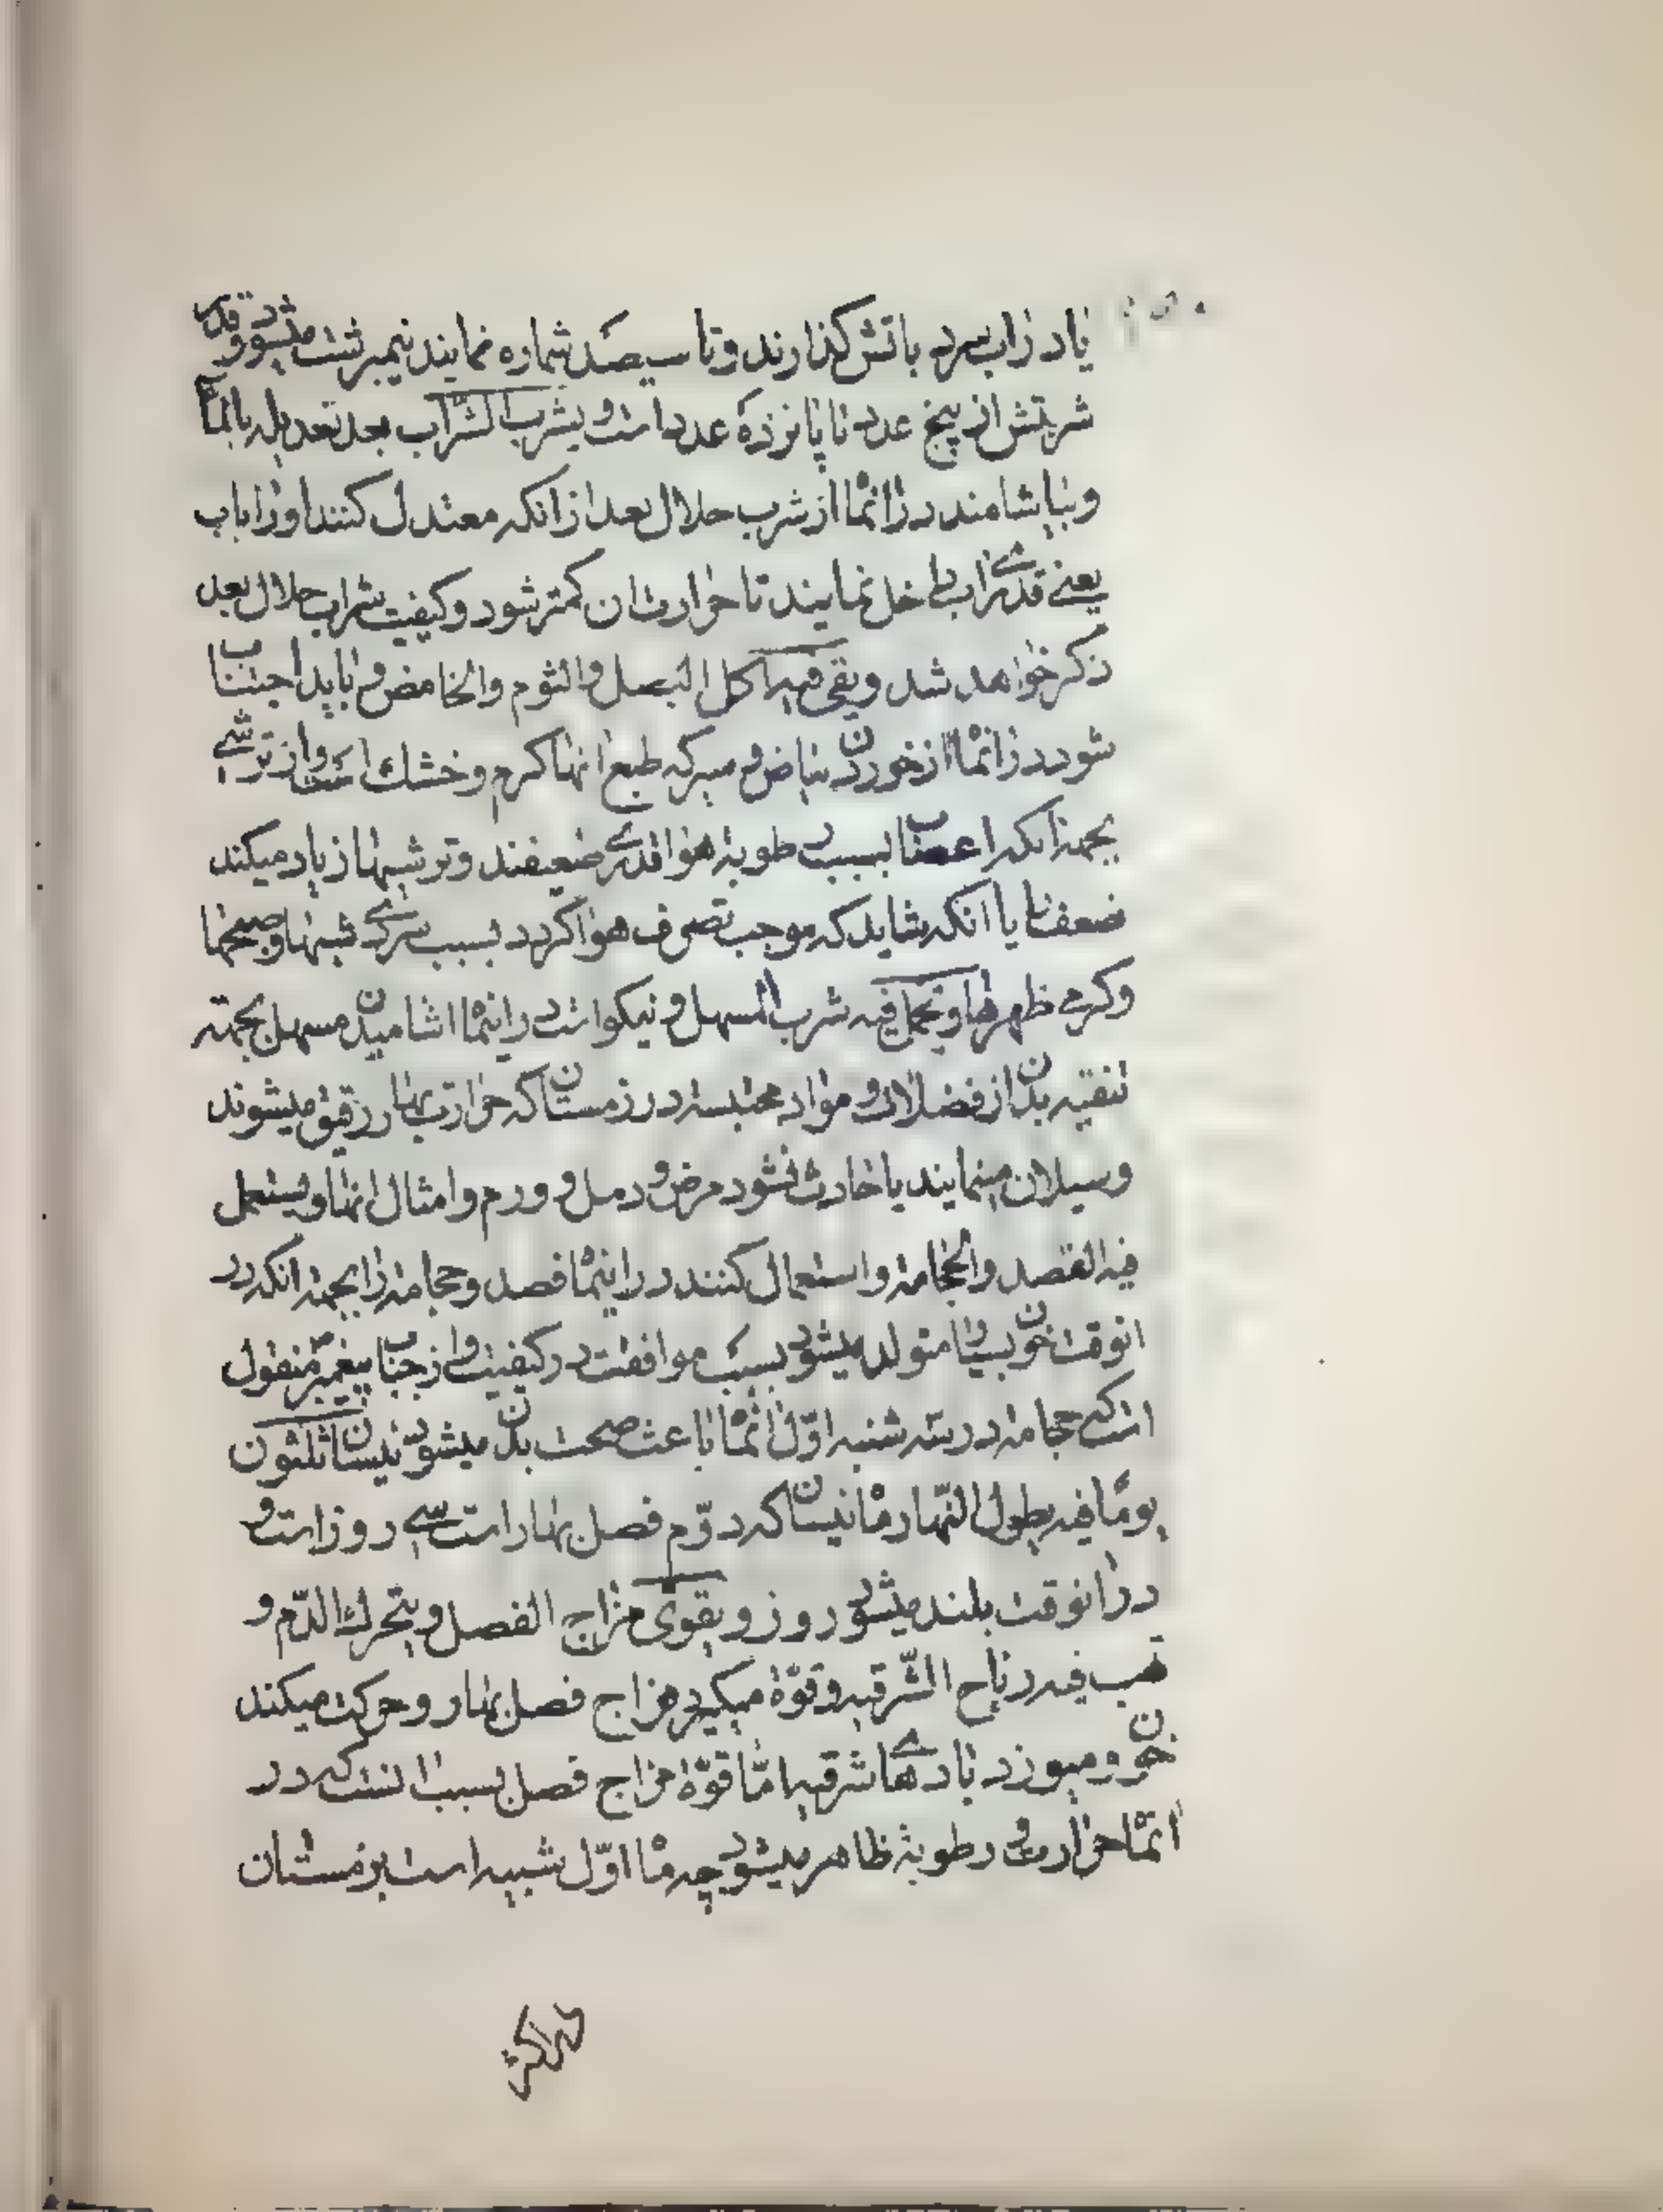 یا در آب سرد باتش کذارند و تا سیصد شماره نمایند نیمبرشت میشود و قدر
شربتش از پنج عدد تا پانزده عدد است و یشرب الشراب بعد تعدیله بالماء
و بیاشامند در انماه از شرب حلال بعد از انکه معتدل کنند او را باب
یعنے قدرے اب داخل نمایند تا حرارت ان کمتر شود و کیفیت شراب حلال بعد
ذکر خواهد شد و یتقی فیه اکل البصل والثوم والحامض و باید اجتناب
شود در انماه از خوردن پیاز و سیر که طبع انها کرم و خشک است و از ترشے
بجهة انکه اعصاب بسبب رطوبة هوا قدرے ضعیفند و ترشیها زیاد میکند
ضعف یا انکه شاید که موجب تصرف هوا کردد بسبب سردے شبها و صبحها
و کرمے ظهرها و یحمد فیه شرب المسهل و نیکو است در اینماه اشامیدن مسهل بجهة
تنقیه بدن از فضلات و مواد محتبسه در زمستان که حرارت بهار رقیق میشوند
و سیلان مینمایند یا حادث نشود مرض و دمل و ورم و امثال انها و یستعمل
فیه الفصد والحجامة و استعمال کنند در اینماه فصد و حجامة را بجهة انکه در
انوقت خون بسیار متولد میشود بسبب موافقت در کیفیت و از جناب پیغمبر منقول
است که حجامة در سه شنبه اول انماه باعث صحت بدن میشود نیسان ثلثون
یوما فیه یطول النهار ماه نیسان که دوم فصل بهار است سے روز است و
در انوقت بلند میشود روز و یقوی مزاج الفصل و یتحرک الدم و
تهب فیه ریاح الشرقیه و قوة میکیرد مزاج فصل بهار و حرکت میکند
خون و میوزد بادهاے شرقیه اما قوة مزاج فصل بسبب انست که در
انماه حرارت و رطوبة ظاهر میشود چه ماه اول شبیه است بزمستان